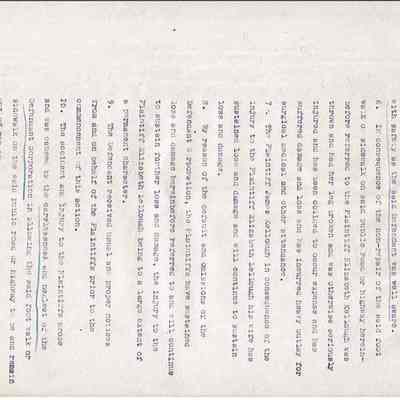 with safety as the said Defendant was well aware.
6. In consequence of the non-repair of the said foot
walk or sidewalk on said Public Road or Highway herein-
before referred to the Plaintiff Elizabeth Kellough was
thrown and had her leg broken and was otherwise seriously
injured and has been obliged to occur expense and has
suffered damage and loss and has incurred heavy outlay for
surgical medical and other attendance.
7. The Plaintiff James Kellough in consequence of the
injury to the Plaintiff Elizabeth Kellough his wife has
sustained loss and damage and will continue to sustain
loss and damage.
8. By reason of the default and omissions of the
Defendant Corporation, the Plaintiffs have sustained
loss and damage hereinbefore referred to and will continue
to sustain further loss and damage the injury to the
Plaintiff Elizabeth Kellough being to a large extent of
a permanent character.
9. The Defendant received usual and proper notices
from and on behalf of the Plaintiffs prior to the
commencement of this action.
10. The accident and injury to the Plaintiffs arose
and was caused by the carelessness and neglect of the
Defendant Corporation in allowing the said foot walk or
sidewalk on the said Public Road or Highway to be and remain